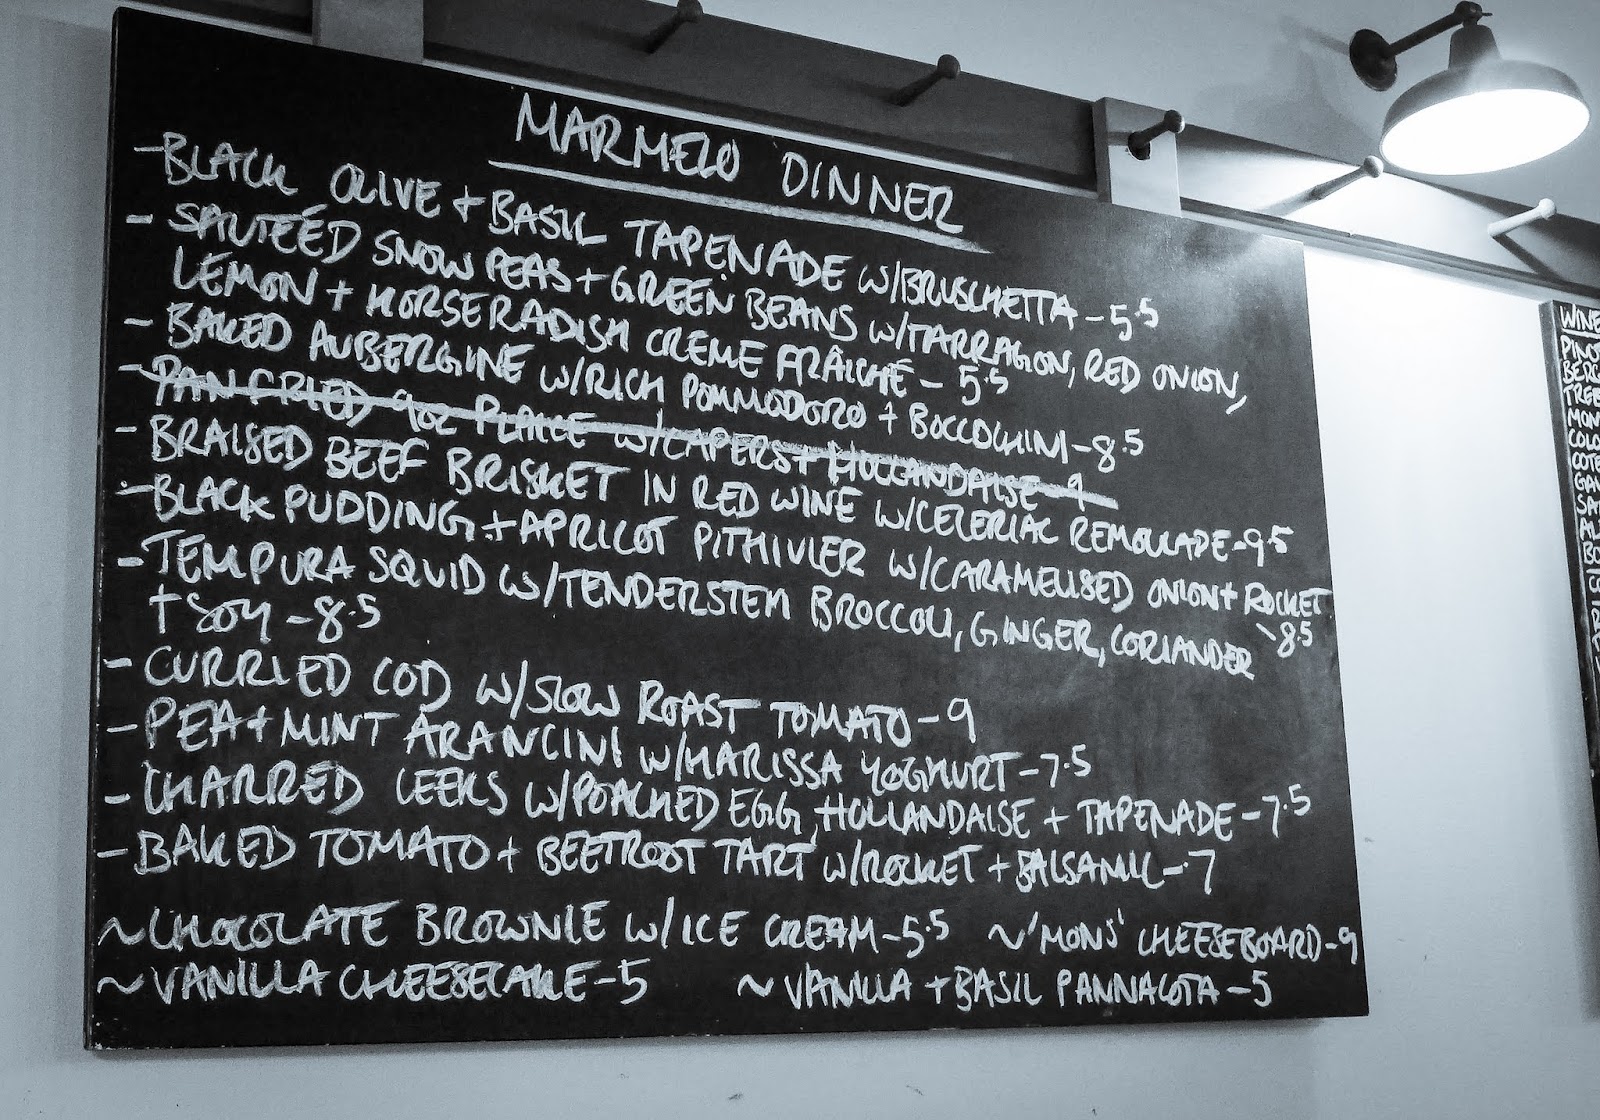 MARMELO DINNER
- BLACK OLIVE + BASIL TAPENADE W/BRUSCHETTA - 5.5
- SAUTEÉD SNOW PEAS + GREEN BEANS W/TARRAGON, RED ONION,
LEMON + HORSERADISH CREME FRÂICHÉ - 5.5
- BAKED AUBERGINE W/RICH POMMODORO + BOCCOCHINI - 8.5
- PAN FRIED 9oz PLAICE W/CAPERS + HOLLANDAISE - 9
- BRAISED BEEF BRISKET IN RED WINE W/CELERIAC REMOULADE - 9.5
- BLACK PUDDING + APRICOT PITHIVIER W/CARAMELISED ONION + ROCKET
- 8.5
- TEMPURA SQUID W/TENDERSTEM BROCCOLI, GINGER, CORIANDER
+ SOY - 8.5
- CURRIED COD W/SLOW ROAST TOMATO - 9
- PEA + MINT ARANCINI W/HARISSA YOGHURT - 7.5
- CHARRED LEEKS W/POACHED EGG, HOLLANDAISE + TAPENADE - 7.5
- BAKED TOMATO + BEETROOT TART W/ROCKET + BALSAMIC - 7
~ CHOCOLATE BROWNIE W/ICE CREAM - 5.5 ~ 'MONS' CHEESEBOARD - 9
~ VANILLA CHEESECAKE - 5 ~ VANILLA + BASIL PANNACOTA - 5
WINE